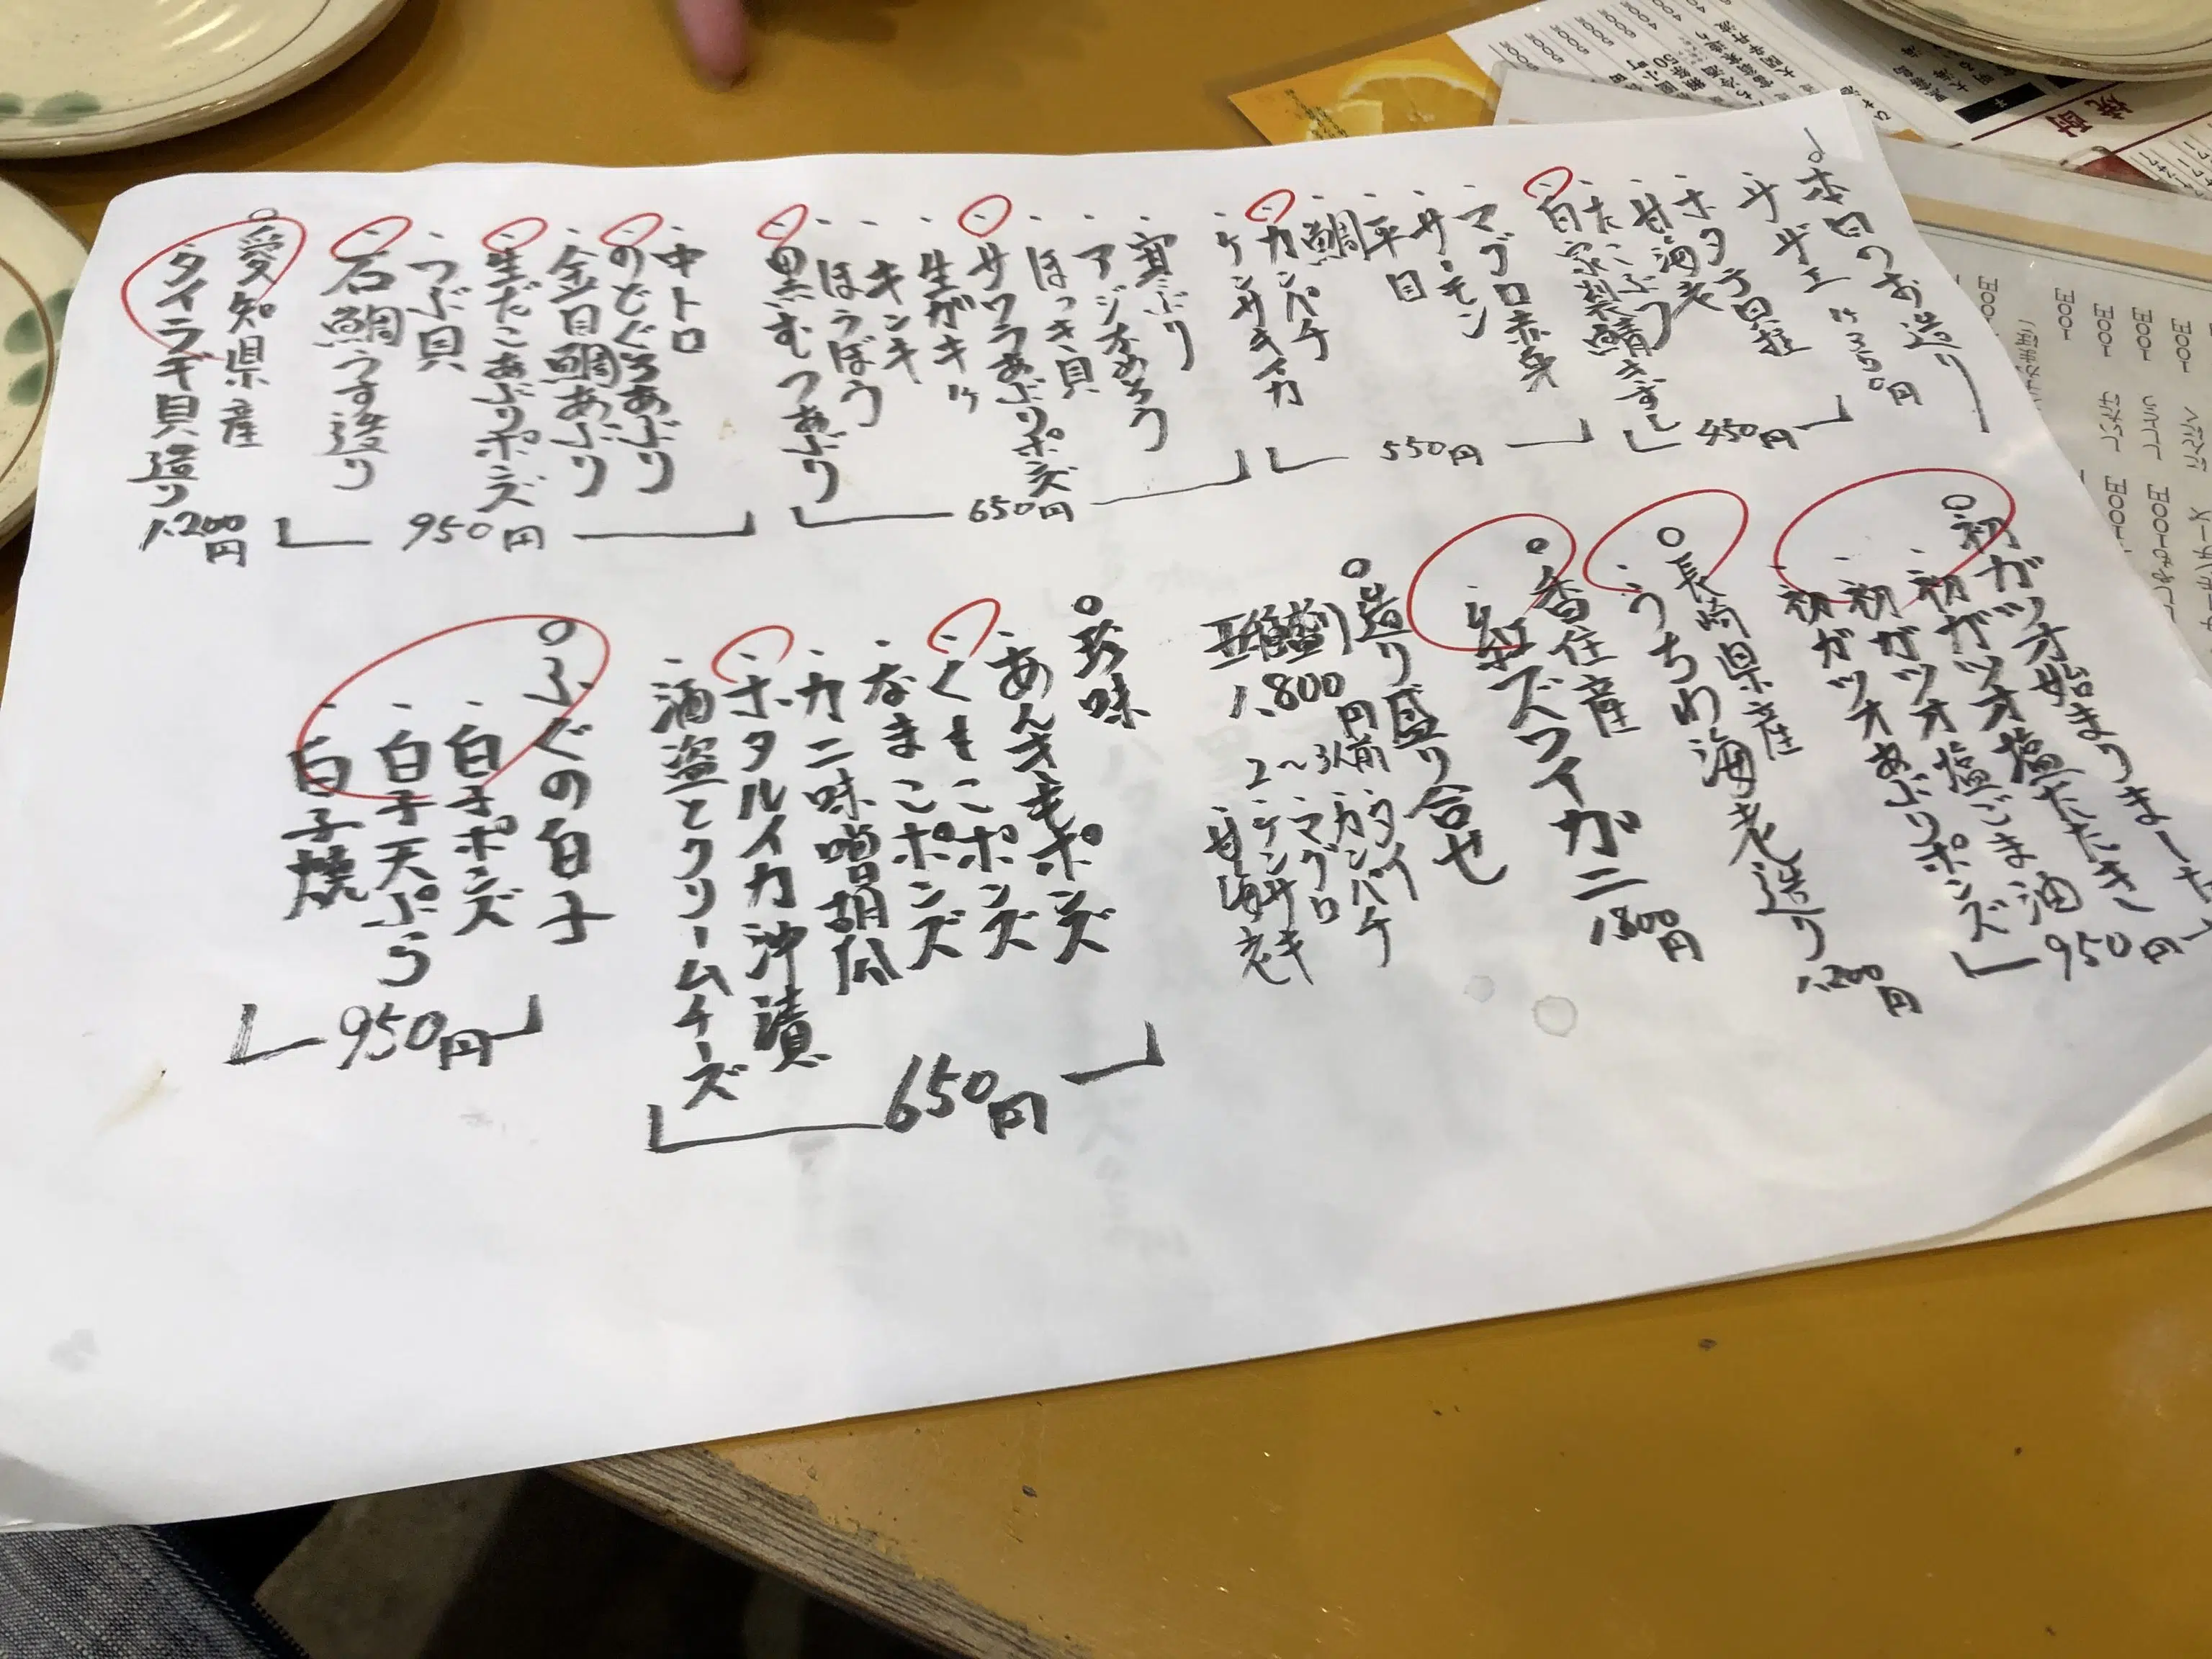 本日のお造り
・サザエ
・ホタテ貝柱
・甘海老
・たこぶつ
・自家製〆鯖きずし
450円
・マグロ赤身
・サーモン
・平目
・鯛
・カンパチ
・ケンサキイカ
550円
・寒ぶり
・アジなめろう
・ほっき貝
・サワラあぶりポン ズ
・生ガキ
・キンキ
・ほうぼう
・黒むつあぶり
650円
・中トロ
・のどぐろあぶり
・金目鯛あぶり
・生だこあぶりポンズ
・つぶ貝
・石鯛うす造り
950円
○愛知県産
・タイラギ貝造り
1.200円
○初ガツオ始まりました
・初ガツオ塩たたき
・初ガツオ塩ごま油
・初ガツオあぶりポンズ
950円
○長崎県産
・うちわ海老造り
1.200円
○香住産
・紅ズワイガニ
1.800円
○造り盛り合せ
五種盛
1.800円
2〜3人前
・タイ
・カンパチ
・マグロ
・ケンサキ
・甘海老
○珍味
・あんきもポンズ
・くもこポンズ
・なまこポンズ
・カニ味噌胡瓜
・ホタルイカ沖漬
・酒盗とクリームチーズ
650円
○ふぐの白子
・白子ポンズ
・白子天ぷら
・白子焼
950円